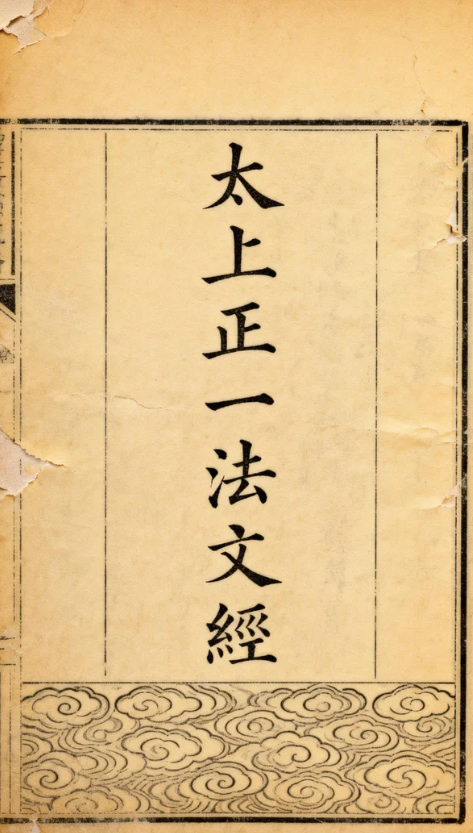 太上正一法文經